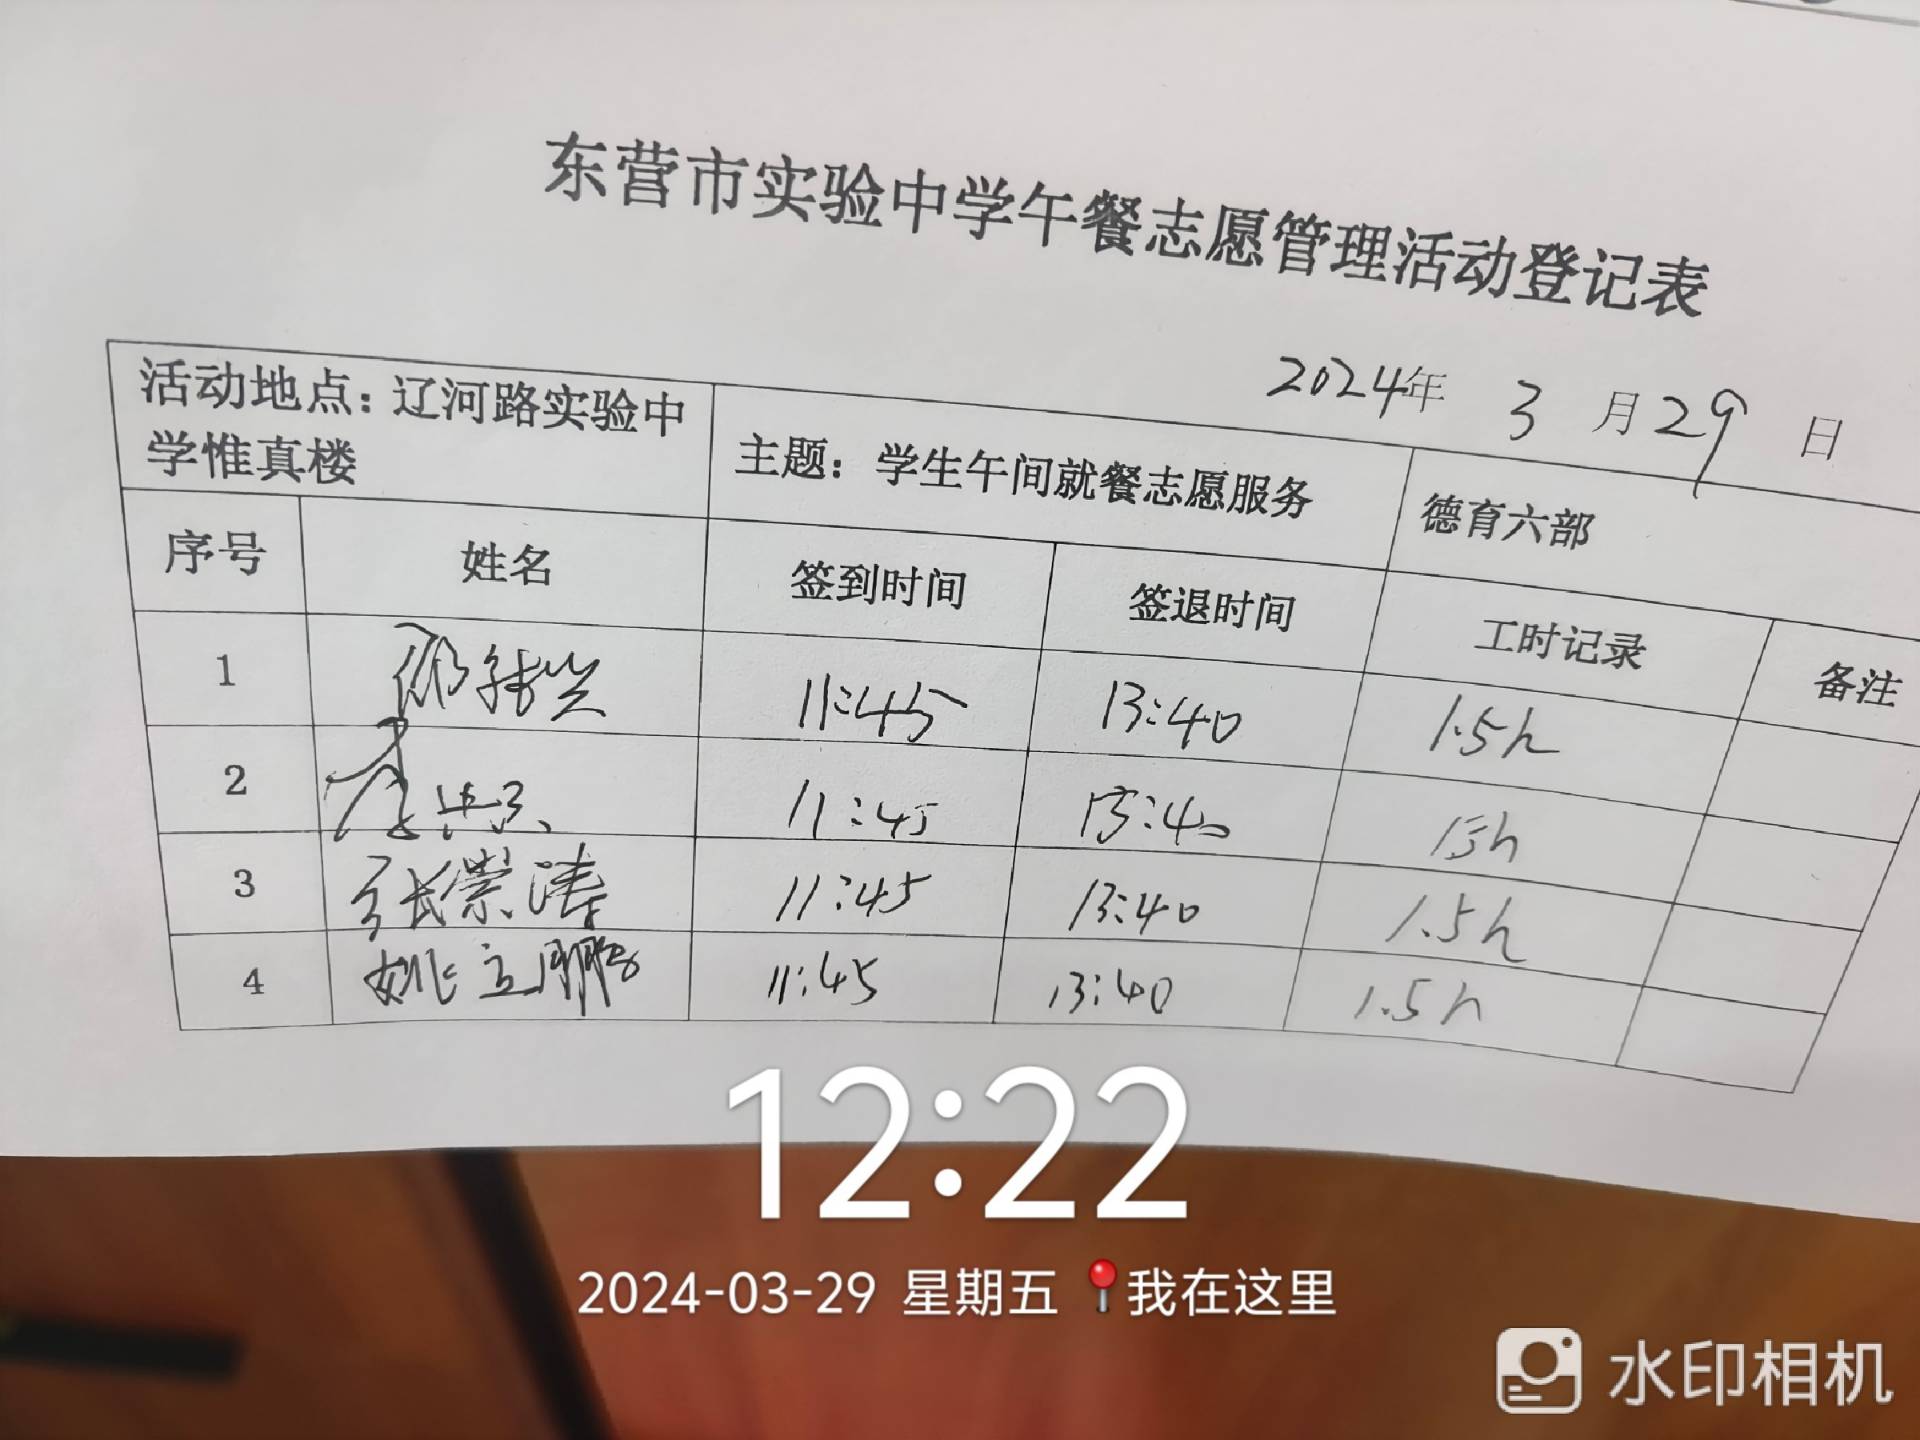 东营市实验中学午餐志愿管理活动登记表
2024年 3 月 29 日
活动地点：辽河路实验中
学惟真楼
主题：学生午间就餐志愿服务
德育六部
序号 姓名 签到时间 签退时间 工时记录 备注
1 11:45 13:40 1.5h
2 11:45 13:40 1.5h
3 张崇涛 11:45 13:40 1.5h
4 姚立鹏 11:45 13:40 1.5h
12:22
2024-03-29 星期五 我在这里
水印相机